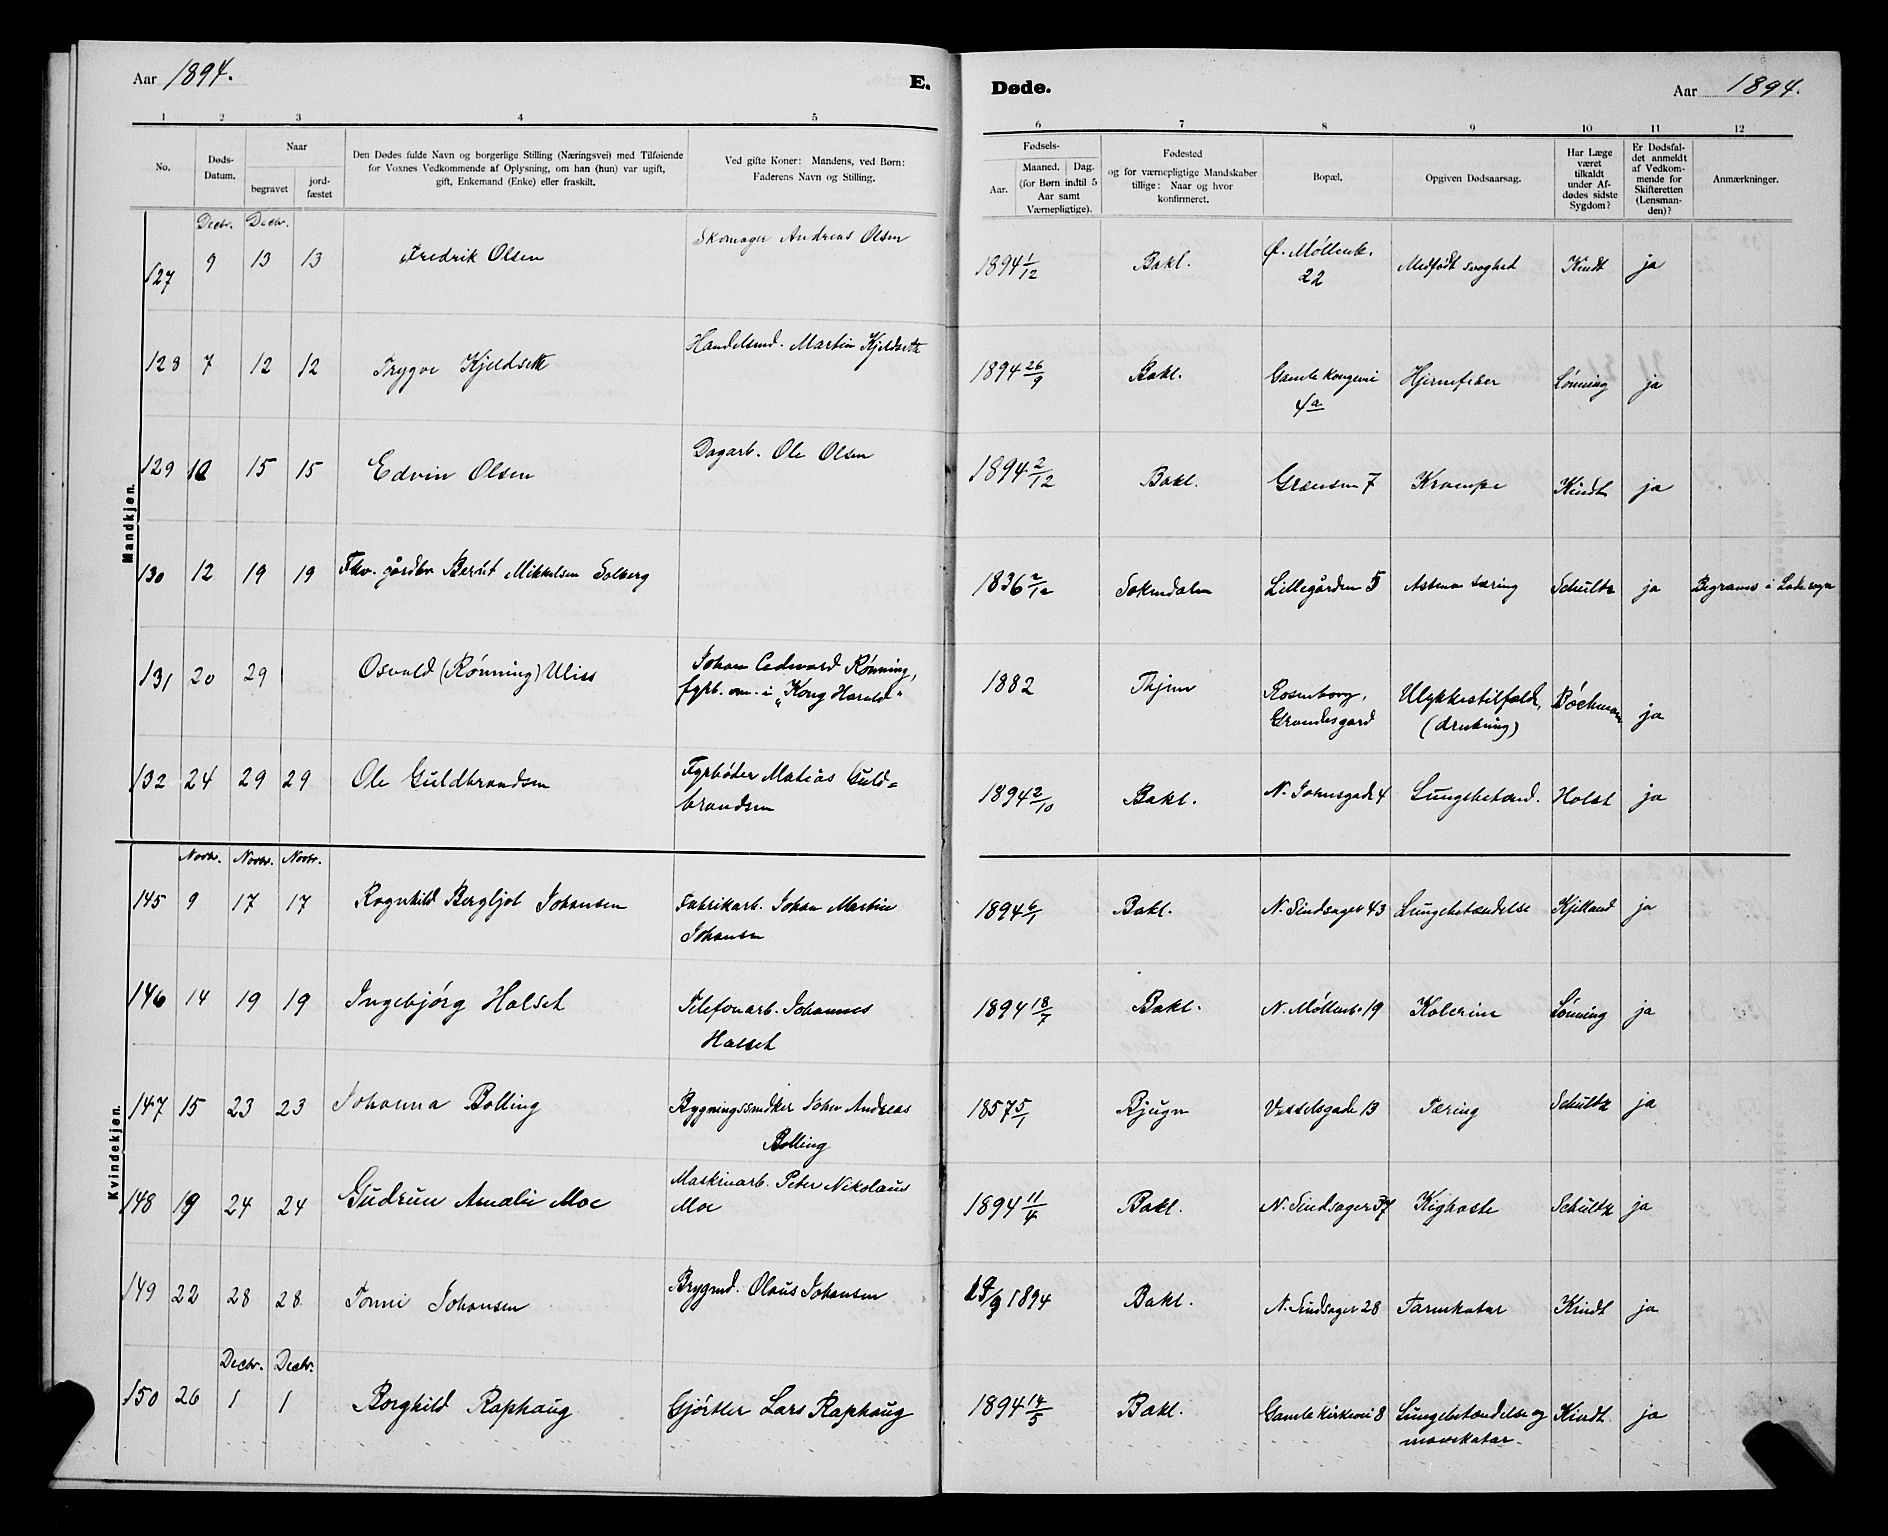 Aar 1894. E.
1 2 3 4 5
No. Døds-Datum. Naar begravet jordfæstet Den Dødes fulde Navn og borgerlige Stilling (Næringsvei) med Tilføiende for Voxnes Vedkommende af Oplysning, om han (hun) var ugift, gift, Enkemand (Enke) eller fraskilt. Ved gifte Koner: Mandens, ved Børn: Faderens Navn og Stilling.
Mandkjøn.
Decbr. Decbr.
127 9 13 13 Fredrik Olsen Skomager Andreas Olsen
128 7 12 12 Trygve Kjeldseth Handelsmd. Martin Kjeldseth
129 10 15 15 Edvin Olsen Dagarb. Ole Olsen
130 12 19 19 Fhv. gårdbr Bernt Mikkelsen Solberg
131 20 29 Osvald (Rönning) Uliss Johan Edvard Rønning,
fyrb. om. i „Kong Harald"
132 24 29 29 Ole Guldbrandsen Fyrbøder Matias Guld=
brandsen
Kvindekjøn.
Novbr. Novbr. Novbr.
145 9 17 17 Ragnhild Bergljot Johansen Fabrikarb. Johan Martin
Johansen
146 14 19 19 Ingebjörg Halset Telefonarb. Johannes
Halset
147 15 23 23 Johanna Bolling Bygningssnedker John Andreas
Bolling
148 19 24 24 Gudrun Amalie Moe Maskinarb. Peter Nikolaus
Moe
149 22 28 28 Jonni Johansen Brygmd. Olaus Johansen
Decbr. Decbr.
150 26 1 1 Borghild Raphaug Gjörtler Lars Raphaug
Døde. Aar 1894.
6 7 8 9 10 11 12
Fødsels- Aar. Maaned. Dag. (for Børn indtil 5 Aar samt Værnepligtige). Fødested og for værnepligtige Mandskaber tillige: Naar og hvor konfirmeret. Bopæl. Opgiven Dødsaarsag. Har Læge været tilkaldt under Afdødes sidste Sygdom? Er Dødsfaldet anmeldt af Vedkommende for Skifteretten (Lensmanden)? Anmærkninger.
1894 1/12 Bakl. Ø. Møllenb. 22 Medfødt svaghed Kindt ja
1894 26/9 Bakl. Gamle Kongevei 4a Hjernefeber Lönning ja
1894 2/12 Bakl. Grænsen 7 Krampe Kindt ja
1836 2/12 Soknedalen Lillegården 5 Astma tæring Schultz ja Begraves i Lade sogn
1882 Thjem Rosenborg, Ulykkestilfælde, Böckmann ja
Grandesgard (drukning)
1894 2/10 Bakl. N. Johnsgade 4 Lungebetænd. Holst ja
1894 6/1 Bakl. N. Sindsager 43 Lungebetændelse Kjelland ja
1894 18/7 Bakl. N. Møllenb. 19 Kolerine Lönning ja
1857 5/1 Bjugn Vesselsgade 13 Tæring Schultz ja
1894 11/4 Bakl. N. Sindsager 37 Kighoste Schultz ja
1894 Bakl. N. Sindsager 28 Tarmkatar Kindt ja
1894 14/5 Bakl. Gamle Kirkevei 8 Lungebetændelse og Kindt. ja
mavekatar.